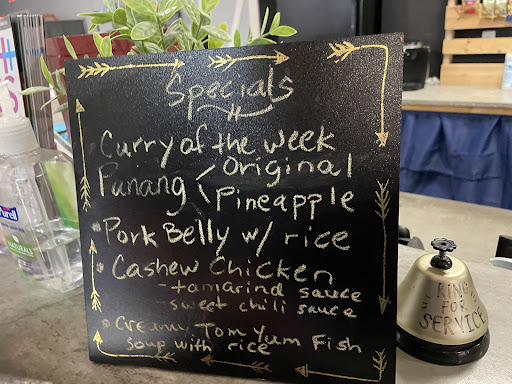 Specials
Curry of the week
Panang < Original
Pineapple
• Pork Belly w/ rice
• Cashew Chicken
- tamarind sauce
- sweet chili sauce
• Creamy Tom Yum Fish
soup with rice
RING
FOR
SERVICE
Purell
NATURALS